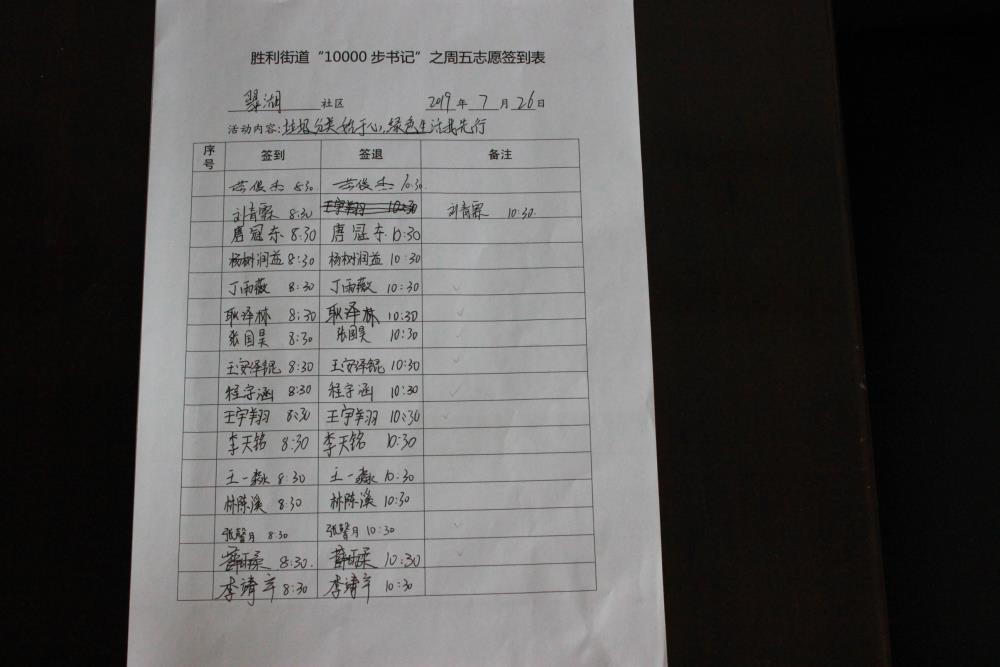 胜利街道“10000步书记”之周五志愿签到表
翠湖 社区 2019年7月26日
活动内容:垃圾分类始于心,绿色生活我先行
序号 签到 签退 备注
俊杰 8:30 俊杰 10:30
刘青霖 8:30 王宇翔 10:30 刘青霖 10:30
唐冠东 8:30 唐冠东 10:30
杨树润益 8:30 杨树润益 10:30
丁雨薇 8:30 丁雨薇 10:30
耿泽林 8:30 耿泽林 10:30
张国昊 8:30 张国昊 10:30
王安泽锟 8:30 王安泽锟 10:30
程宇涵 8:30 程宇涵 10:30
王宇翔 8:30 王宇翔 10:30
李天铭 8:30 李天铭 10:30
王一淼 8:30 王一淼 10:30
林陈溪 8:30 林陈溪 10:30
张馨月 8:30 张馨月 10:30
8:30. 10:30
李靖辛 8:30 李靖辛 10:30